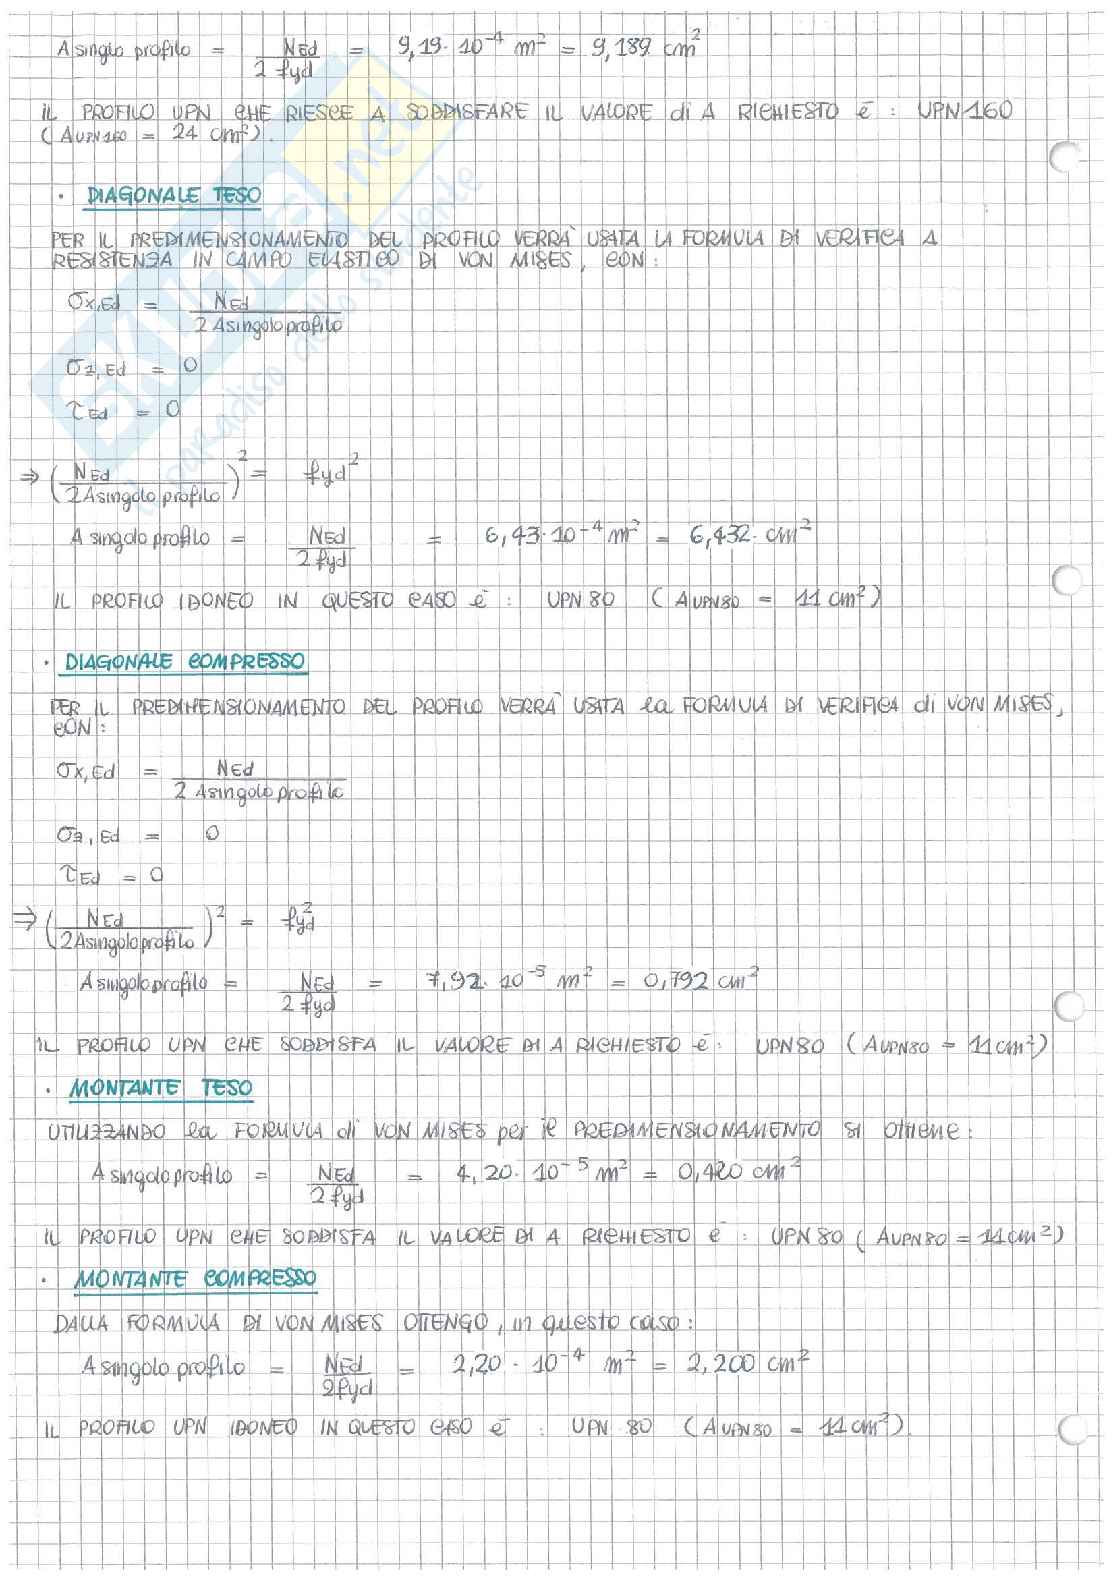 A singlo profilo = NEd / 2 fyd = 9,19 · 10⁻⁴ m² = 9,189 cm²
IL PROFILO UPN CHE RIESCE A SODDISFARE IL VALORE di A RICHIESTO è : UPN160
(AUPN160 = 24 cm²).
· DIAGONALE TESO
PER IL PREDIMENSIONAMENTO DEL PROFILO VERRÀ USATA LA FORMULA DI VERIFICA A
RESISTENZA IN CAMPO ELASTICO DI VON MISES, CON:
σx,Ed = NEd / 2 Asingolo profilo
σz,Ed = 0
τEd = 0
⇒ (NEd / 2 Asingolo profilo)² = fyd²
A singolo profilo = NEd / 2 fyd = 6,43·10⁻⁴ m² = 6,432 · cm²
IL PROFILO IDONEO IN QUESTO CASO è : UPN 80 (AUPN80 = 11 cm²)
· DIAGONALE COMPRESSO
PER IL PREDIMENSIONAMENTO DEL PROFILO VERRÀ USATA la FORMULA DI VERIFICA di VON MISES,
CON :
σx,Ed = NEd / 2 Asingolo profilo
σz,Ed = 0
τEd = 0
⇒ (NEd / 2 Asingolo profilo)² = fyd²
A singolo profilo = NEd / 2 fyd = 7,92 · 10⁻⁵ m² = 0,792 cm²
IL PROFILO UPN CHE SODDISFA IL VALORE DI A RICHIESTO è : UPN80 (AUPN80 = 11 cm²)
· MONTANTE TESO
UTILIZZANDO la FORMULA di VON MISES per il PREDIMENSIONAMENTO si ottiene :
A singolo profilo = NEd / 2 fyd = 4,20 · 10⁻⁵ m² = 0,420 cm²
IL PROFILO UPN CHE SODDISFA IL VALORE DI A RICHIESTO è : UPN 80 (AUPN80 = 11 cm²)
· MONTANTE COMPRESSO
DALLA FORMULA DI VON MISES OTTENGO, in questo caso :
A singolo profilo = NEd / 2 fyd = 2,20 · 10⁻⁴ m² = 2,200 cm²
IL PROFILO UPN IDONEO IN QUESTO CASO è : UPN 80 (AUPN80 = 11 cm²).
SKUOLA.net
il paradiso dello studente